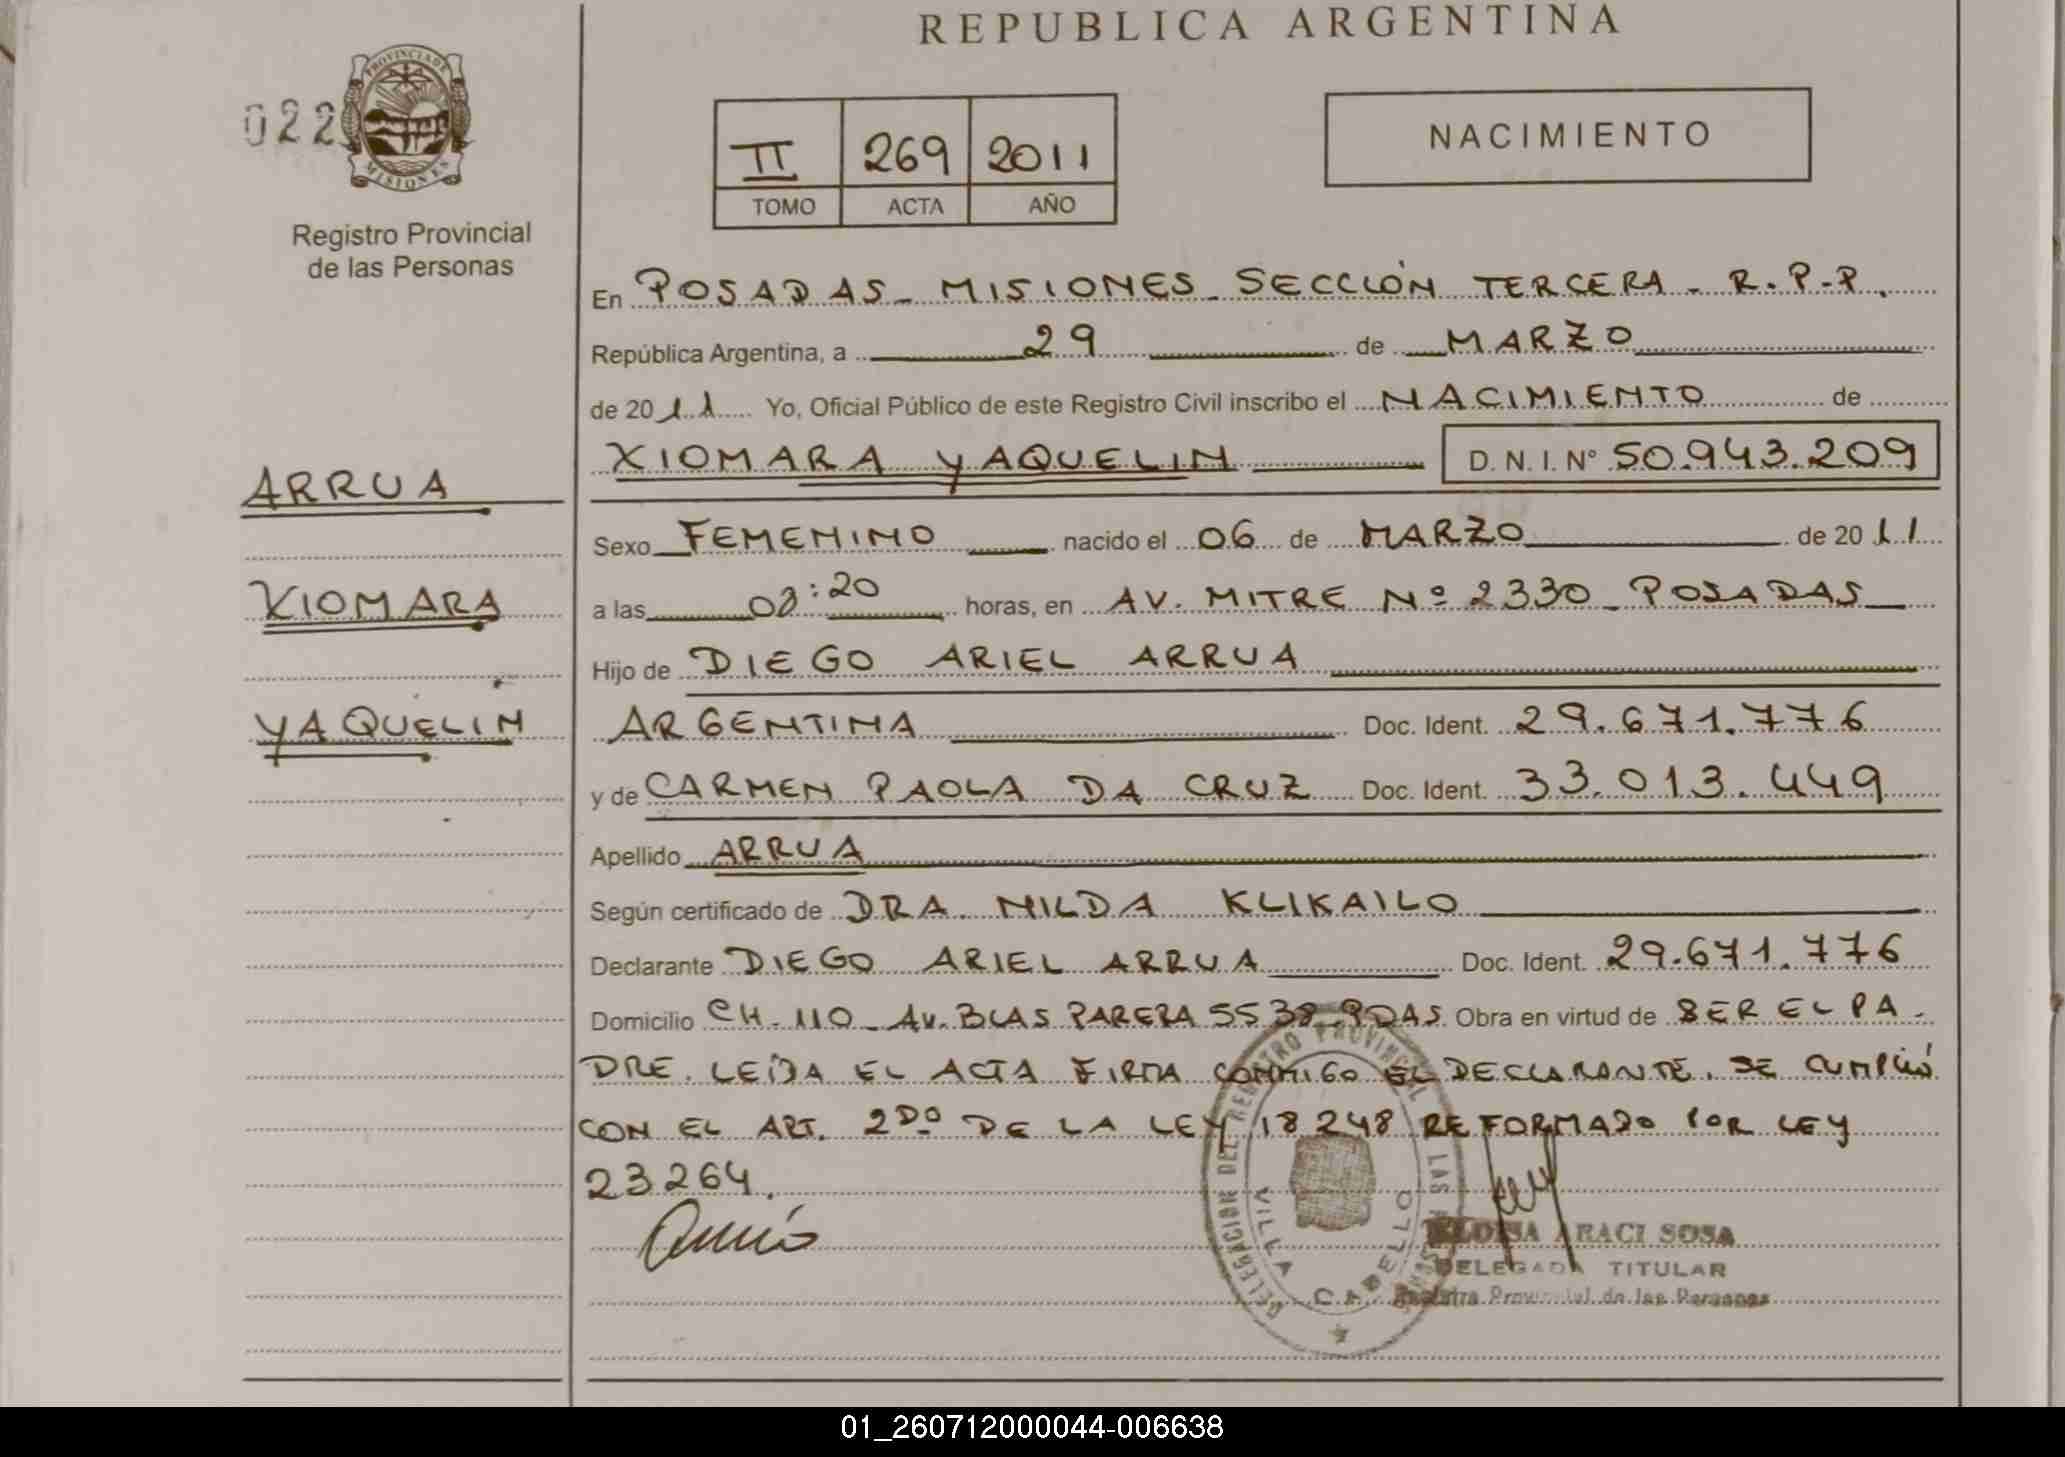 REPUBLICA ARGENTINA
022
PROVINCIA DE
MISIONES
Registro Provincial
de las Personas
II 269 2011
TOMO ACTA AÑO
NACIMIENTO
En POSADAS - MISIONES - SECCIÓN TERCERA - R.P.P.
República Argentina, a 29 de MARZO
de 2011 Yo, Oficial Público de este Registro Civil inscribo el NACIMIENTO de
XIOMARA YAQUELIN D.N.I. N° 50.943.209
ARRUA
XIOMARA
YAQUELIN
Sexo FEMENINO nacido el 06 de MARZO de 2011
a las :20 horas, en AV. MITRE Nº 2330 - POSADAS
Hijo de DIEGO ARIEL ARRUA
ARGENTINA Doc. Ident. 29.671.776
y de CARMEN PAOLA DA CRUZ Doc. Ident. 33.013.449
Apellido ARRUA
Según certificado de DRA. NILDA KLIKAILO
Declarante DIEGO ARIEL ARRUA Doc. Ident. 29.671.776
Domicilio CH. 110 - AV. BLAS PARERA 5538 - PDAS Obra en virtud de SER EL PA-
DRE. LEÍDA EL ACTA FIRMA CONMIGO EL DECLARANTE. SE CUMPLIÓ
CON EL ART. 2DO DE LA LEY 18248 REFORMADO POR LEY
23264.
DELEGACION DEL REGISTRO PROVINCIAL LAS
VILLA CABELLO
ELOISA ARACI SOSA
DELEGADA TITULAR
Registro Provincial de las Personas
01_260712000044-006638